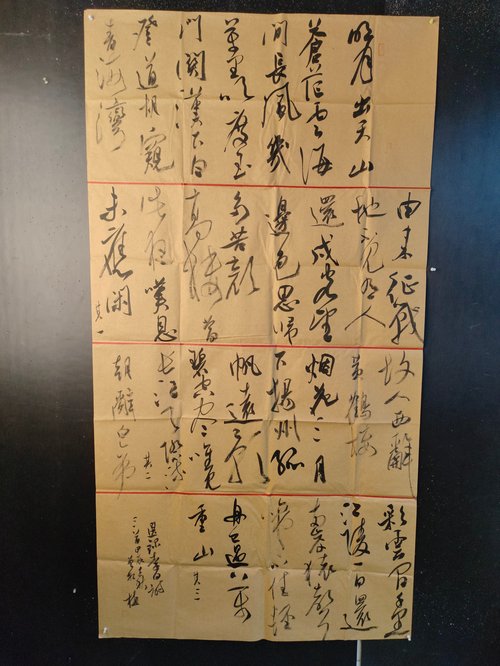 明月出天山
蒼茫雲海
間長風幾
萬里吹度玉
門關漢下白
登道胡窺
青海灣
由來征戰
地不見有人
還戍客望
邊色思歸
多苦顏
高樓當
此夜嘆息
未應閑 其一
故人西辭
黃鶴樓
烟花三月
下揚州孤
帆遠影
碧空盡唯見
長江天際流 其二
朝辭白帝
彩雲間千里
江陵一日還
兩岸猿聲
啼不住輕
舟已過萬
重山 其三
李白詩
三首甲辰